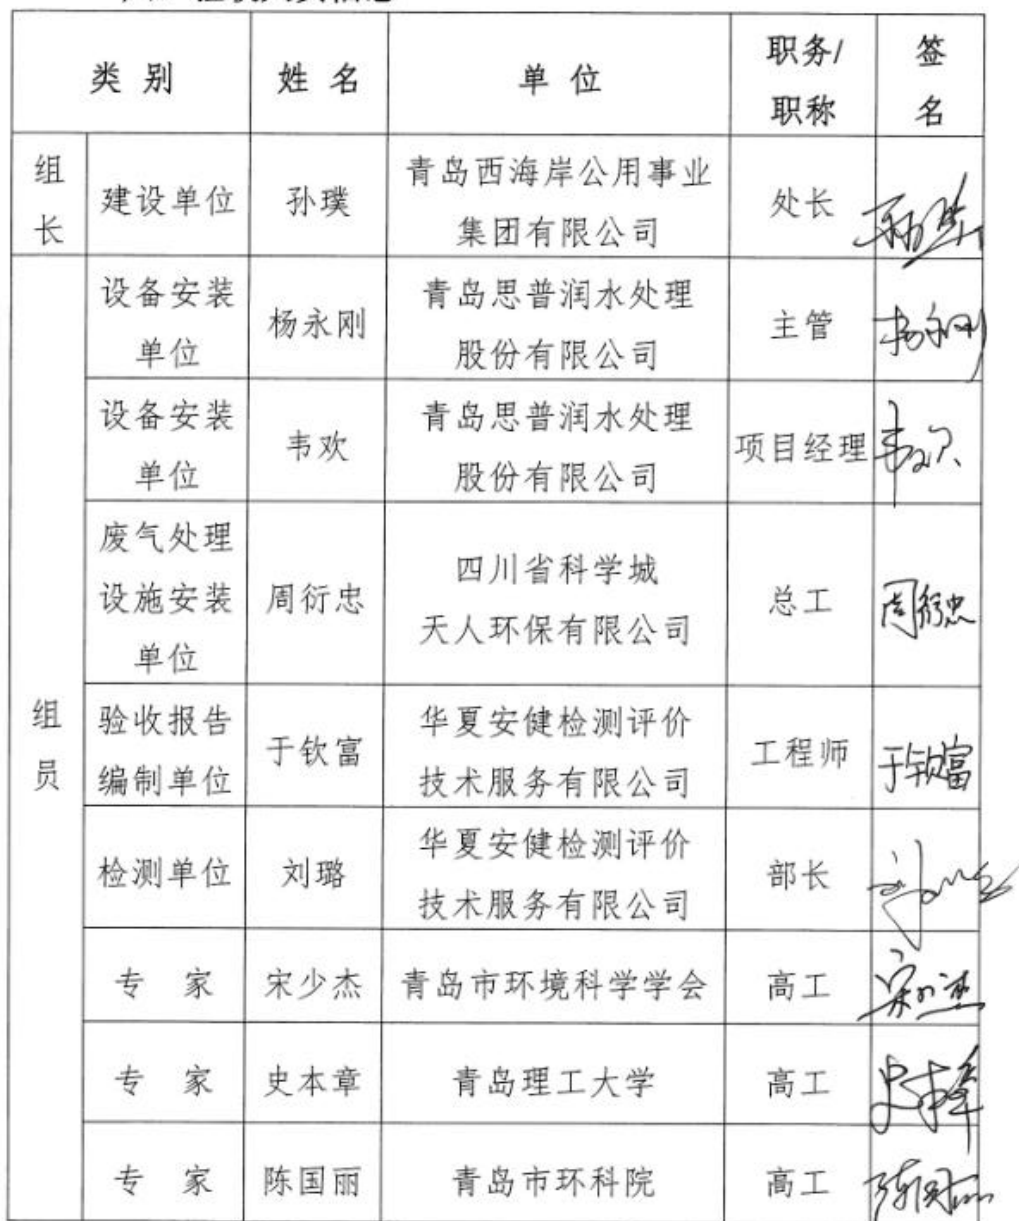 类 别 姓 名 单 位 职务/职称 签名
组长 建设单位 孙璞 青岛西海岸公用事业集团有限公司 处长
组员
设备安装单位 杨永刚 青岛思普润水处理股份有限公司 主管 杨永刚
设备安装单位 韦欢 青岛思普润水处理股份有限公司 项目经理 韦欢
废气处理设施安装单位 周衍忠 四川省科学城天人环保有限公司 总工 周衍忠
验收报告编制单位 于钦富 华夏安健检测评价技术服务有限公司 工程师 于钦富
检测单位 刘璐 华夏安健检测评价技术服务有限公司 部长
专 家 宋少杰 青岛市环境科学学会 高工 宋少杰
专 家 史本章 青岛理工大学 高工 史本章
专 家 陈国丽 青岛市环科院 高工 陈国丽